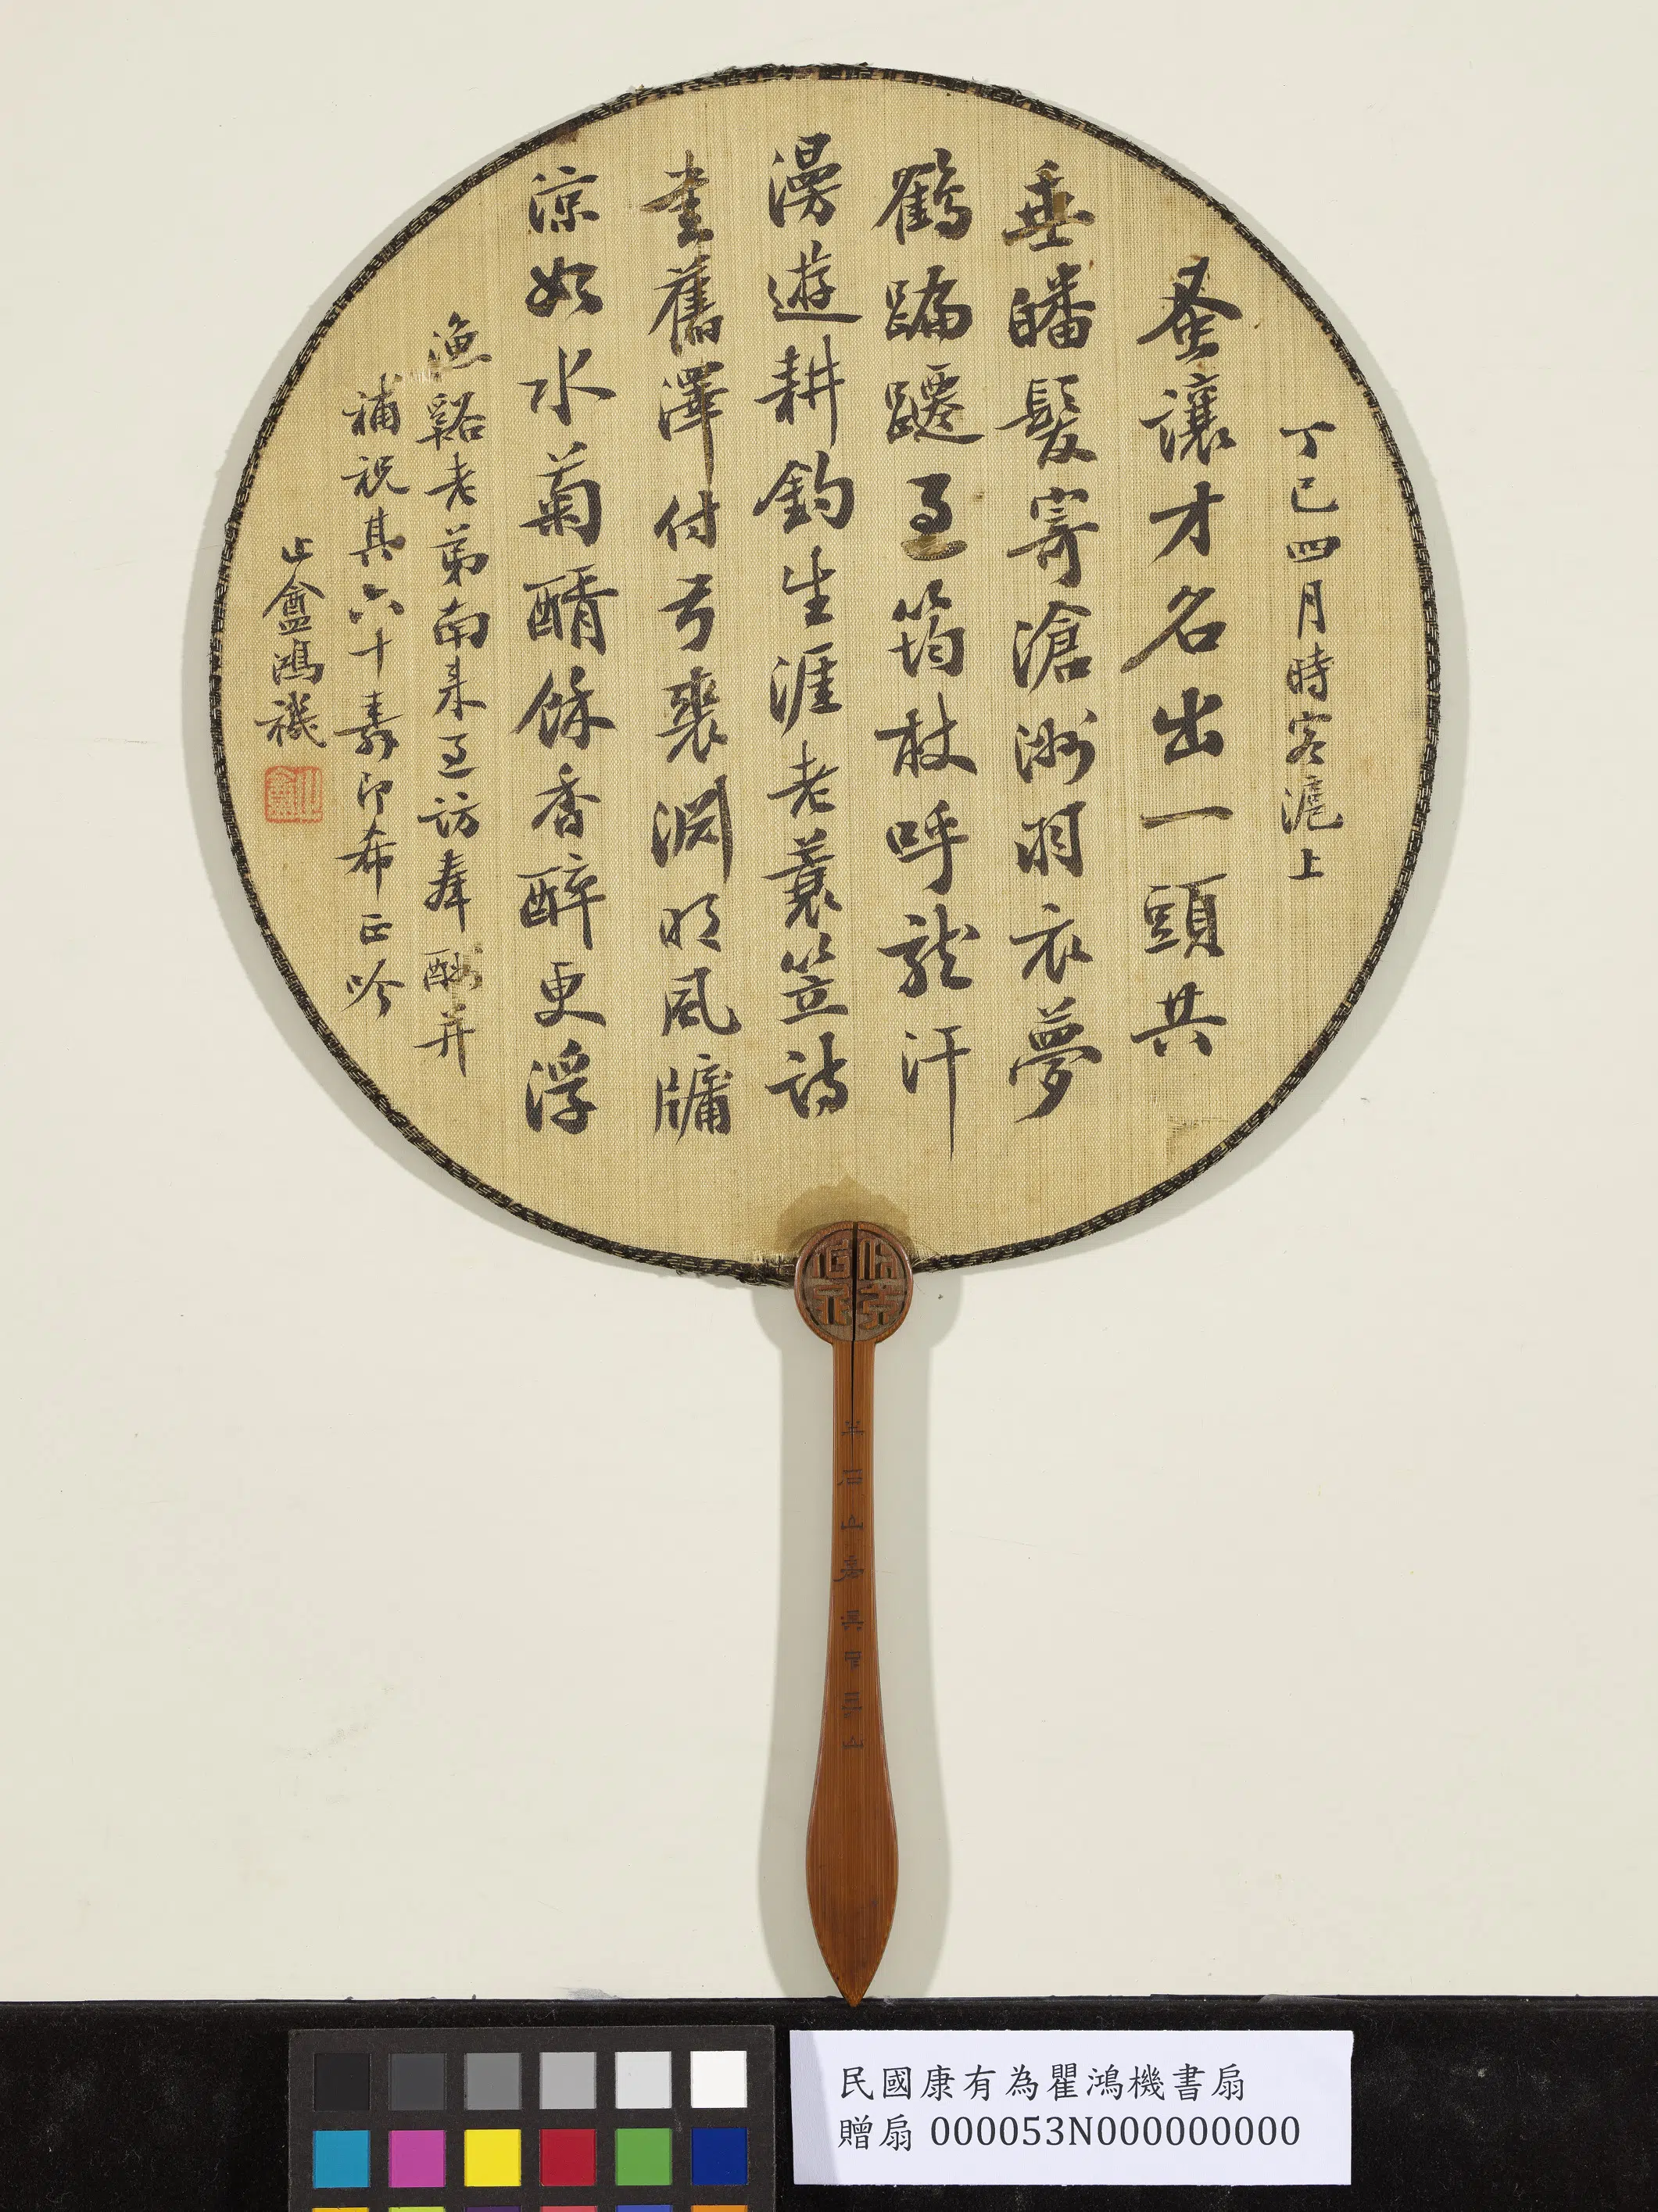 蚤讓才名出一頭共
垂皤髮寄滄洲羽衣夢
鶴蹁躚至筠杖呼龍汗
漫遊耕釣生涯老蓑笠詩
書舊澤付弓裘淵明風牖
涼如水菊醑餘香醉更浮
漁谿老弟南來過訪奉酬并
補祝其六十壽即希正吟
止盦鴻禨
止盦
丁巳四月時客滬上
民國康有為瞿鴻機書扇
贈扇 000053N000000000